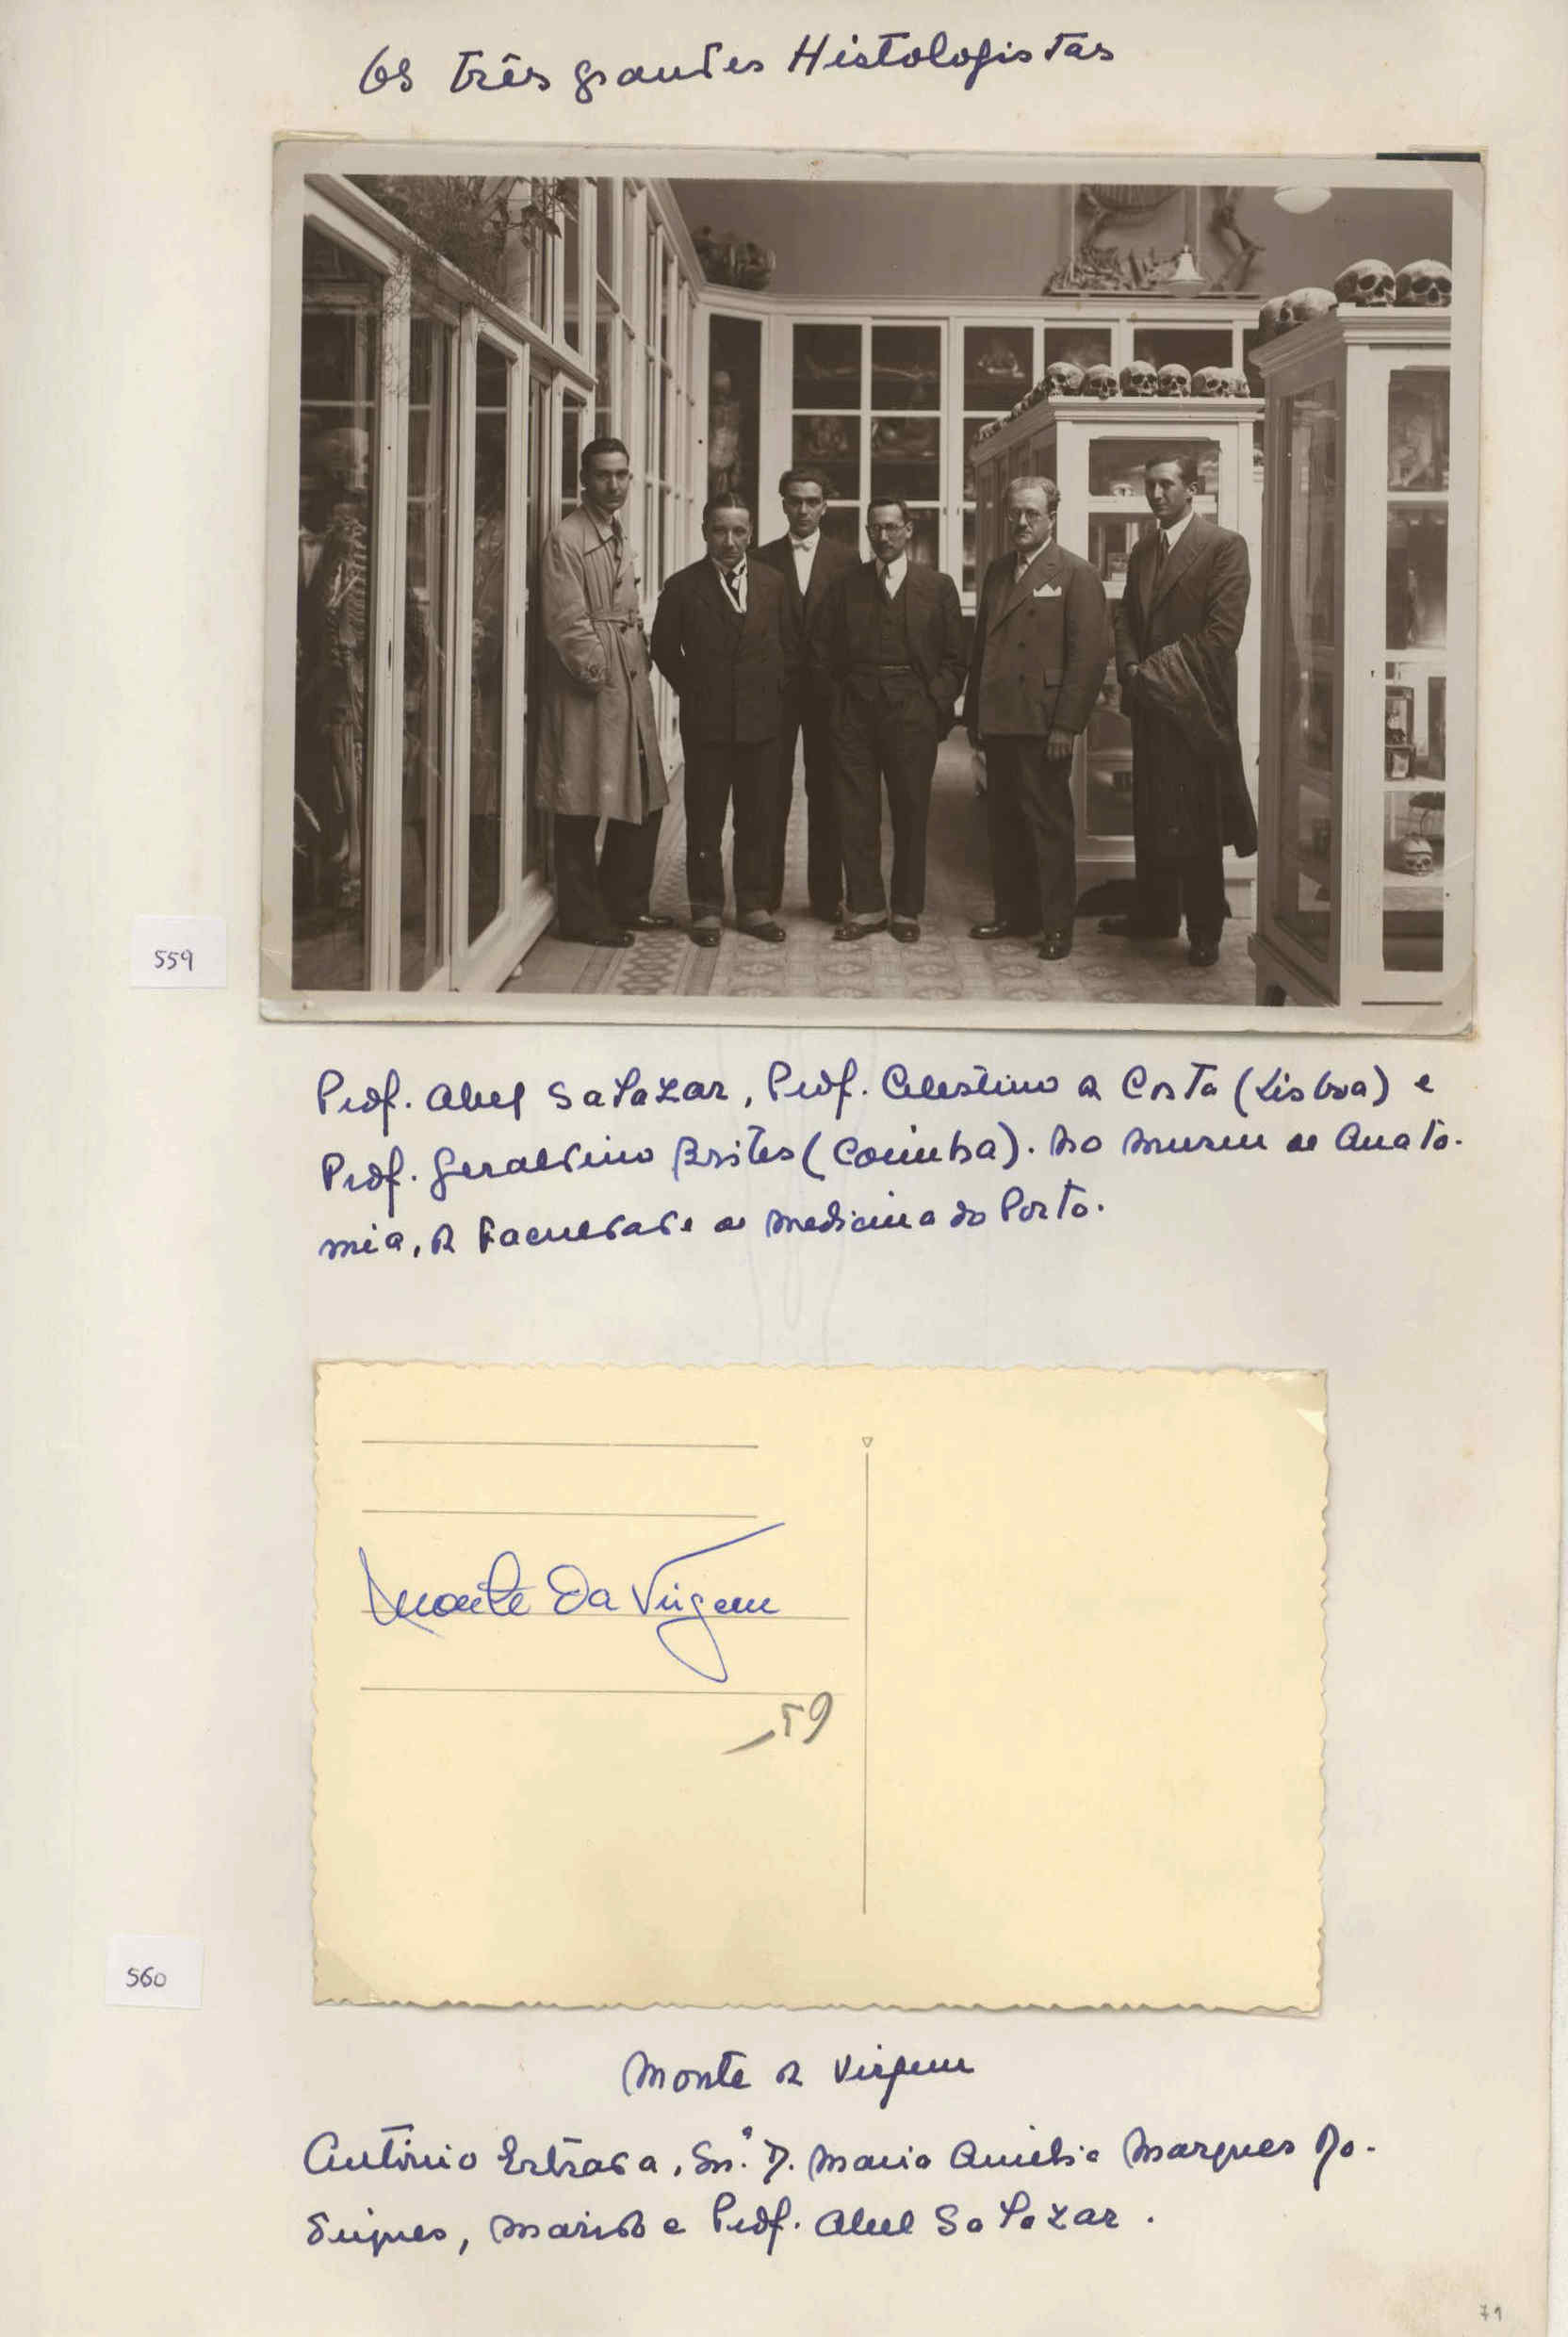 Os três grandes Histologistas
559
Prof. Abel Salazar, Prof. Celestino da Costa (Lisboa) e
Prof. Geraldino Brites (Coimbra). No Museu de Anato-
mia, da Faculdade de Medicina do Porto.
Monte Da Virgem
59
560
Monte da Virgem
António Estrada, Snr.ª D. Maria Amélia Marques Ro-
drigues, marido e Prof. Abel Salazar.
71